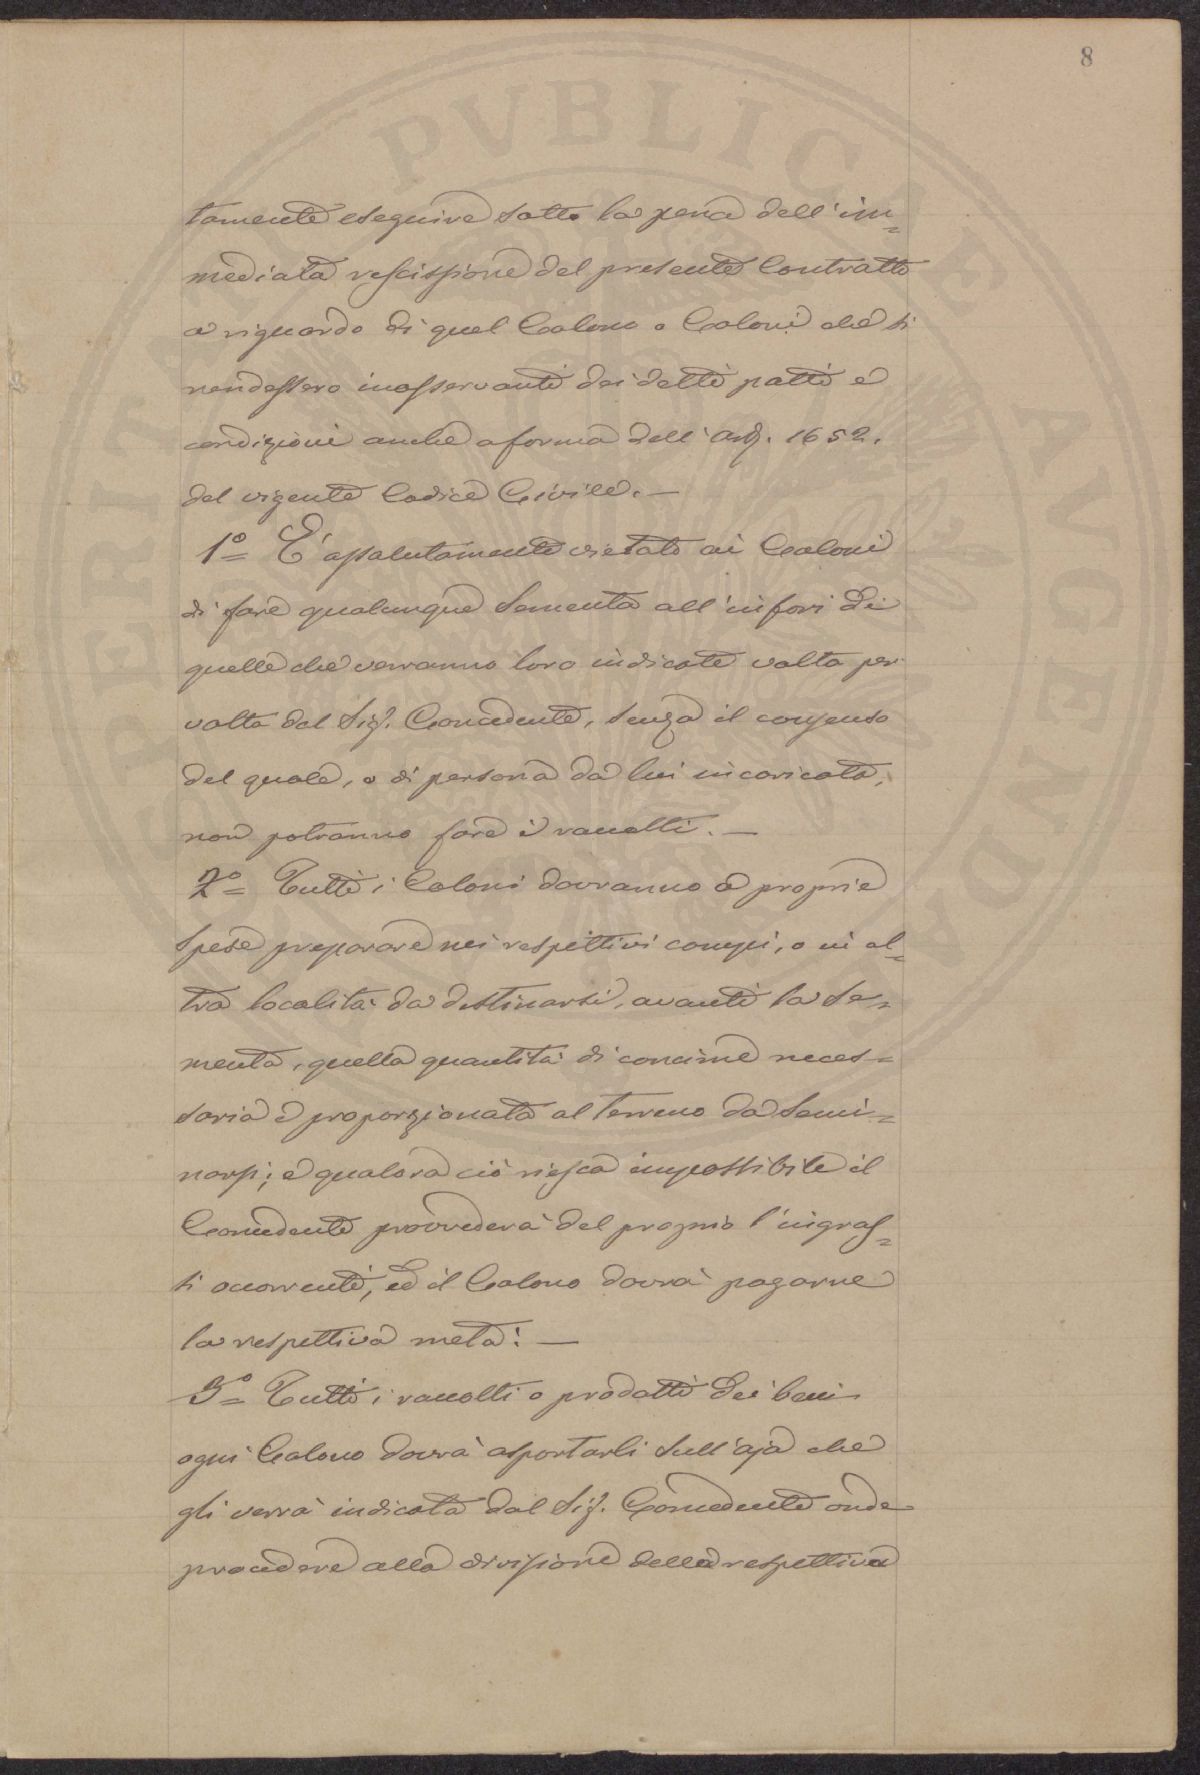 8
tamente eseguire sotto la pena dell'im=
mediata rescissione del presente Contratto
a riguardo di quel Colono o Coloni che si
rendessero inosservanti dei detti patti e
condizioni anche a forma dell'art. 1652.
del vigente Codice Civile.—
1°= E' assolutamente vietato ai Coloni
di fare qualunque Sementa all'infori di
quelle che verranno loro indicate volta per
volta dal Sig. Concedente, senza il consenso
del quale, o di persona da lui incaricata,
non potranno fare i raccolti.—
2°= Tutti i Coloni dovranno a proprie
Spese preparare nei respettivi campi, o in al=
tra località da destinarsi, avanti la Se=
menta, quella quantità di concime neces=
saria e proporzionata al terreno da Semi=
narsi; e qualora ciò riesca impossibile il
Concedente provvederà del proprio l'ingras=
si occorrente, ed il Colono dovrà pagarne
la respettiva metà:—
3°= Tutti i raccolti o prodotti dei beni
ogni Colono dovrà asportarli sull'aja che
gli verrà indicata dal Sig. Concedente onde
procedere alla divisione della respettiva